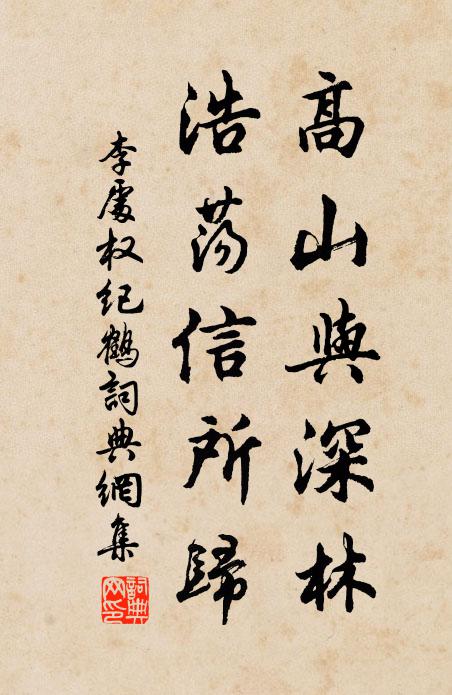 高山與深林
浩荡信所歸
李處权纪鶴詞典網集
詞典網印